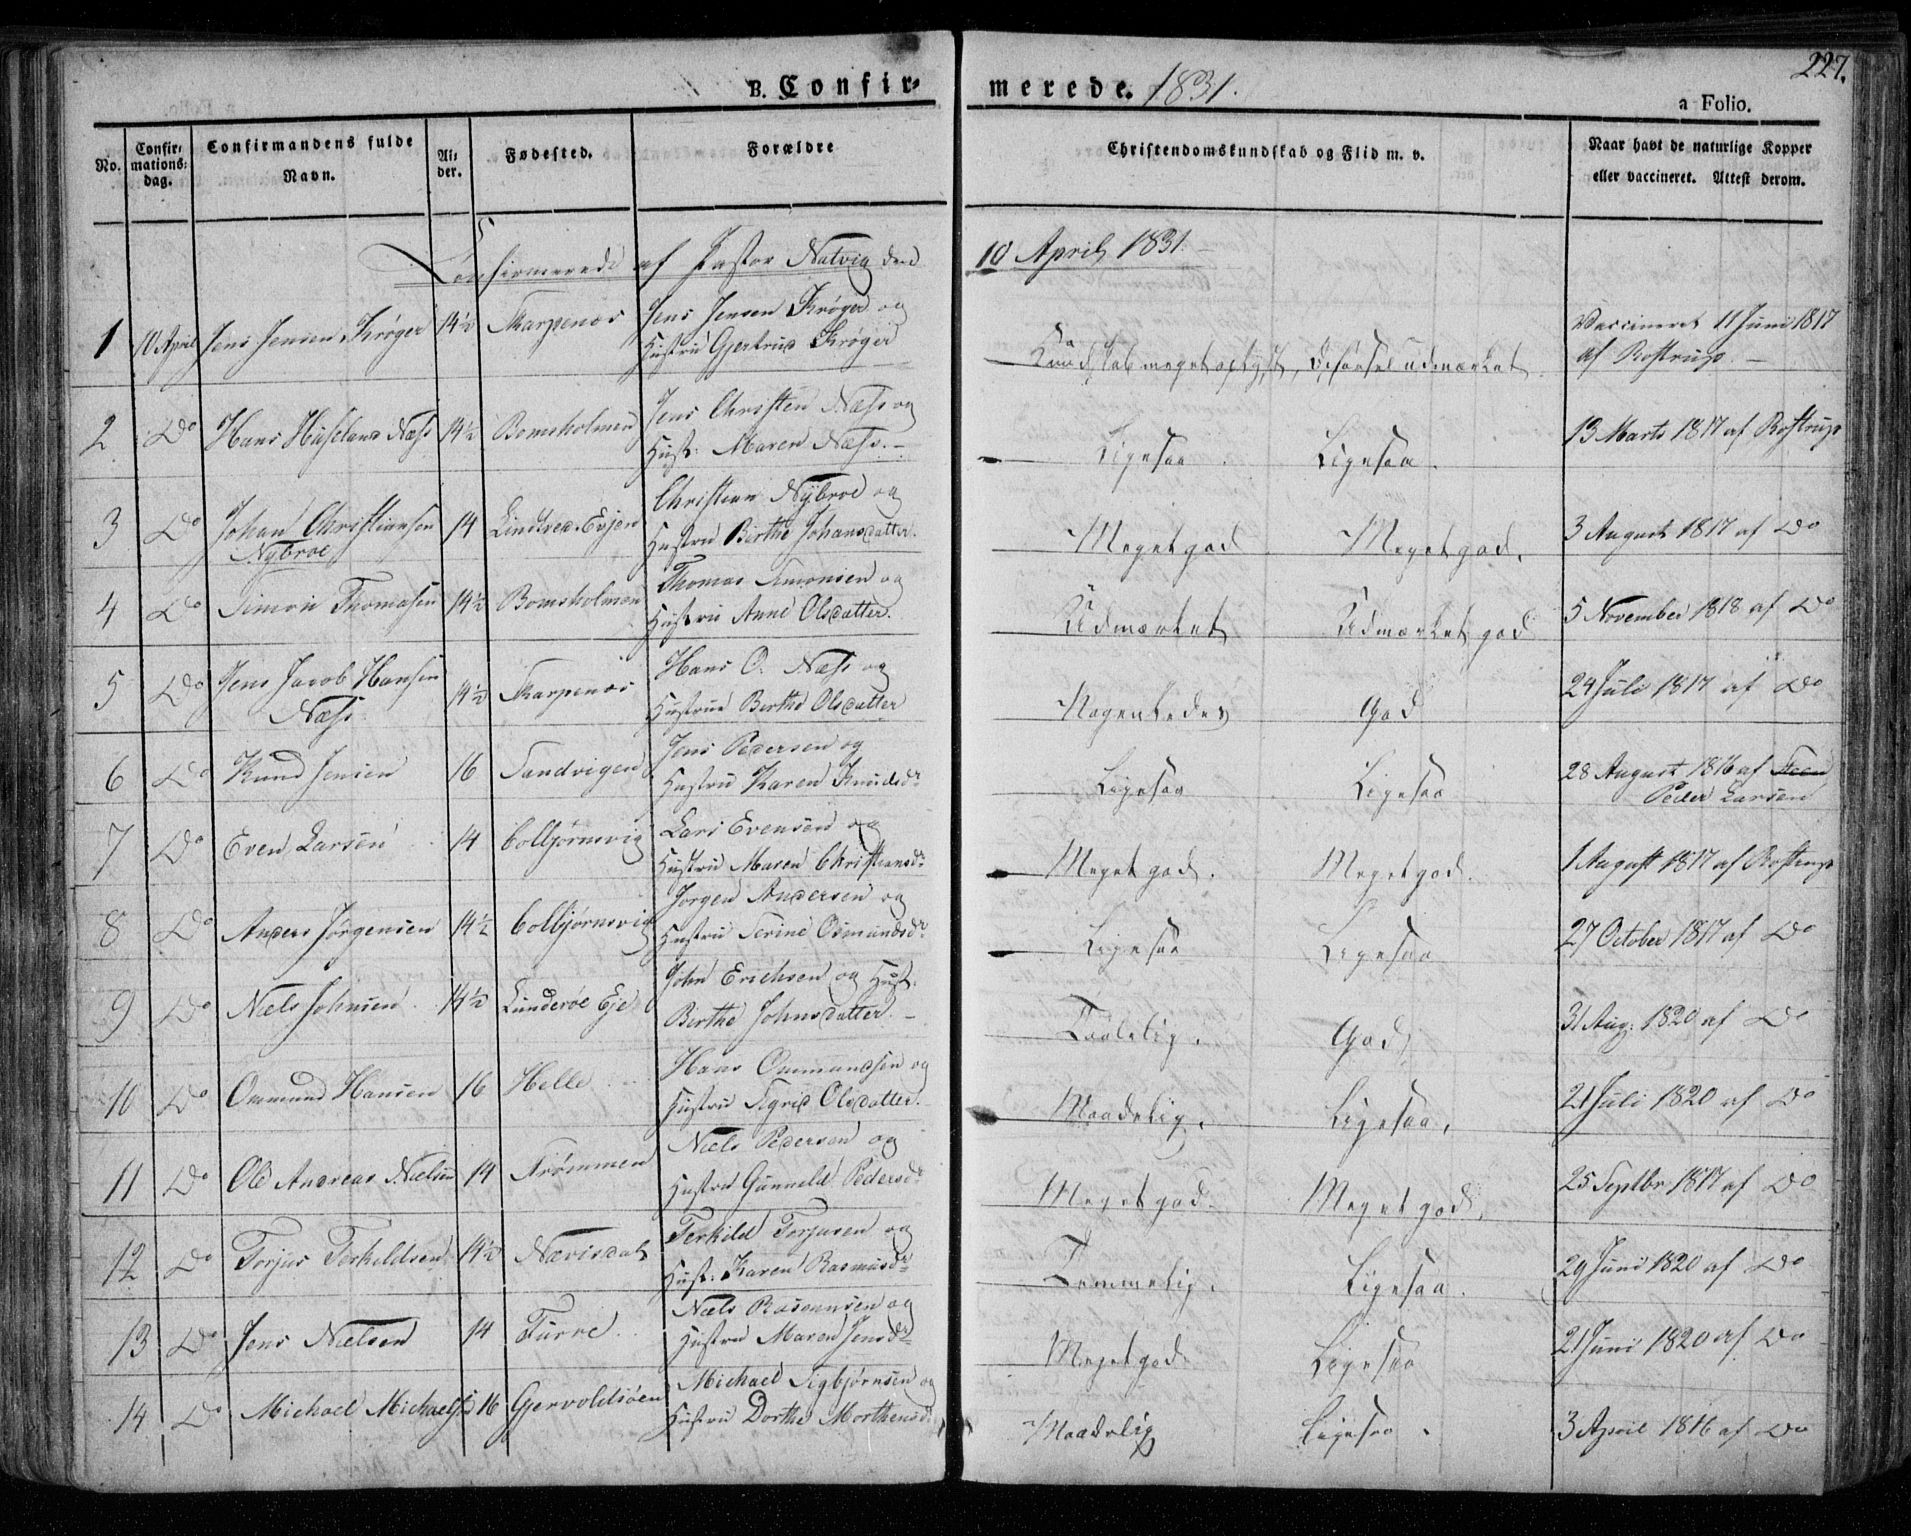 227.
B. Confir- merede. 1831.
a Folio.
No. Confir- mations- dag. Confirmandens fulde Navn. Al- der. Fødested. Forældre Christendomskundskab og Flid m. v. Naar havt de naturlige Kopper eller vaccineret. Attest derom.
Confirmerede af Pastor Natvig den 10 April 1831.
1 10 April Jens Jensen Krøger 14½ Skarpenes Jens Jensen Krøger og Kundskab meget oplyst, Opførsel udmærket. Vaccineret 11 Juni 1817
Hustru Gjertrud Krøger af Rostrup.
2 Do Hans Huseland Næss 14½ Bomsholmen Jens Christen Næss og Ligesaa. Ligesaa. 13 Marts 1817 af Rostrup
Hust: Maren Næss.
3 Do Johan Christiansen 14 Lindtved Evjen Christian Nybroe og Meget god Meget god. 3 August 1817 af Do
Nybroe Hustru Birthe Johansdatter.
4 Do Simon Thomasen 14½ Bomsholmen Thomas Simonsen og Udmærket Udmærket god 5 November 1818 af Do
Hustru Anne Olsdatter.
5 Do Jens Jacob Hansen 14½ Skarpenes Hans O. Næss og Nogenledes God 24 Juli 1817 af Do
Næss. Hustrue Birthe Olsdatter
6 Do Knud Jensen 16 Sandvigen Jens Pedersen og Ligesaa Ligesaa 28 August 1816 af
Hustru Karen Knudsdr Peder Larsen
7 Do Even Larsen 14 Colbjørnsvig Lars Evensen og Meget god. Meget god. 1 August 1817 af Rostrup
Hustru Maren Christiansdr
8 Do Anders Jørgensen 14½ Colbjørnsvig Jørgen Andersen og Ligesaa Ligesaa 27 October 1817 af Do
Hustru Serine Osmundsdr
9 Do Niels Johnsen 14½ Lunderøe Eje John Erichsen og Hust. Taalelig. God 31 Aug: 1820 af Do
Berthe Johnsdatter.
10 Do Ommund Hansen 16 Helle Hans Ommundsen og Maadelig. Ligesaa. 21 Juli 1820 af Do
Hustru Sigrid Olsdatter.
11 Do Ole Andreas Nielsen 14 Strømmen Niels Pedersen og Meget god. Meget god. 25 Septbr 1817 af Do
Hustru Gunneld Pedersdr
12 Do Torjus Terkildsen 14½ Nævisdal Terkild Torjusen og Temmelig. Ligesaa. 29 Juni 1820 af Do
Hust: Karen Rasmusdr
13 Do Jens Nielsen 14 Furre Niels Rasmusen og Meget god. Ligesaa 21 Juni 1820 af Do
Hustru Maren Jensdr
14 Do Michael Michaels 16 Gjervoldsøen Michael Sigbjørnsen og Maadelig Ligesaa. 3 April 1816 af Do
Hustru Dorthe Morthensd.